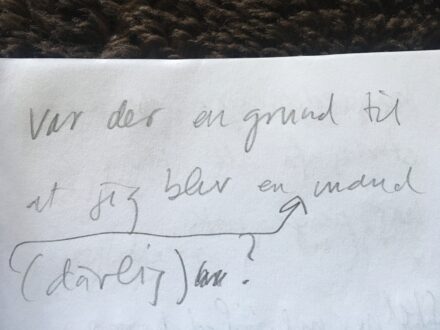 Var der en grund til
at jeg blev en mand
(dårlig)?